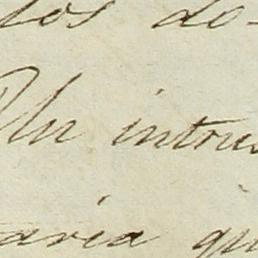 tos do-
Un intrus
aria qu